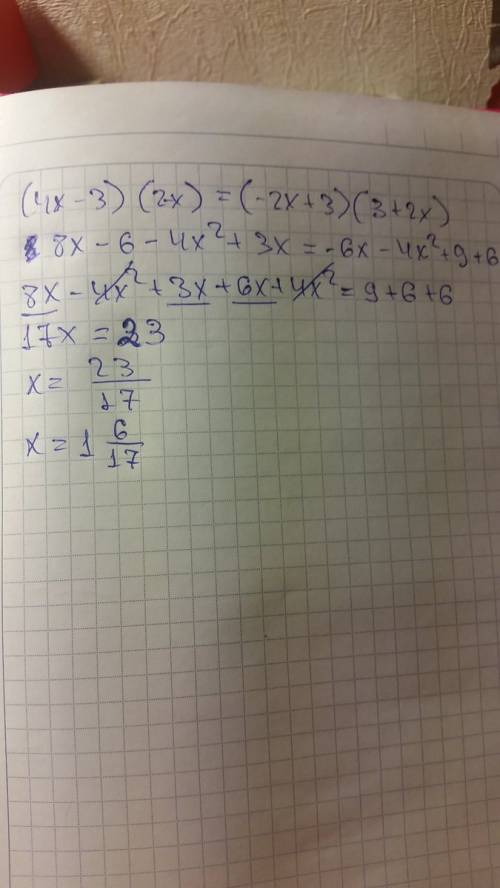 (4x - 3) (2x) = (-2x + 3)(3 + 2x)
8x - 6 - 4x² + 3x = -6x - 4x² + 9 + 6
8x - 4x² + 3x + 6x + 4x² = 9 + 6 + 6
17x = 23
x = 23/17
x = 1 6/17